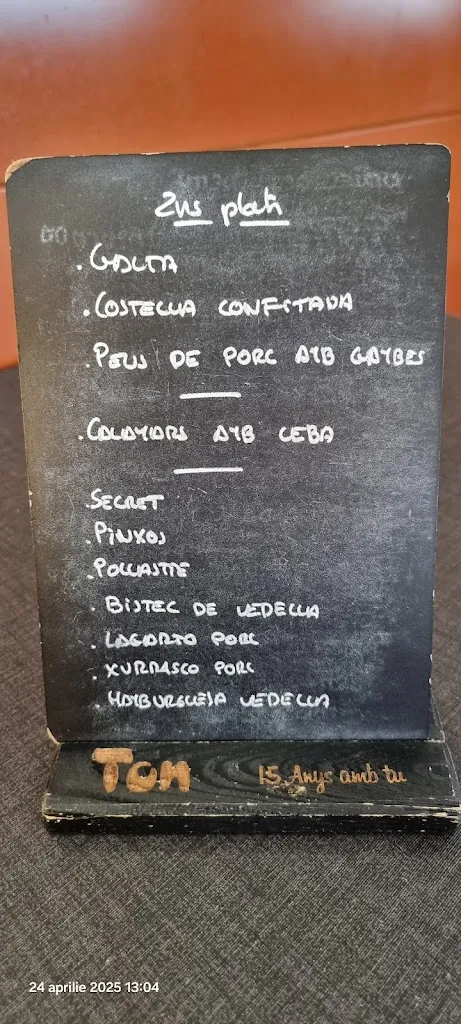 2ns plats
. GALTA
. COSTELLA CONFITADA
. PEUS DE PORC AMB GAMBES
. CALAMARS AMB CEBA
. SECRET
. PINXOS
. POLLASTRE
. BISTEC DE VEDELLA
. LAGARTO PORC
. XURRASCO PORC
. HAMBURGUESA VEDELLA
Ton 15 Anys amb tu
24 aprilie 2025 13:04